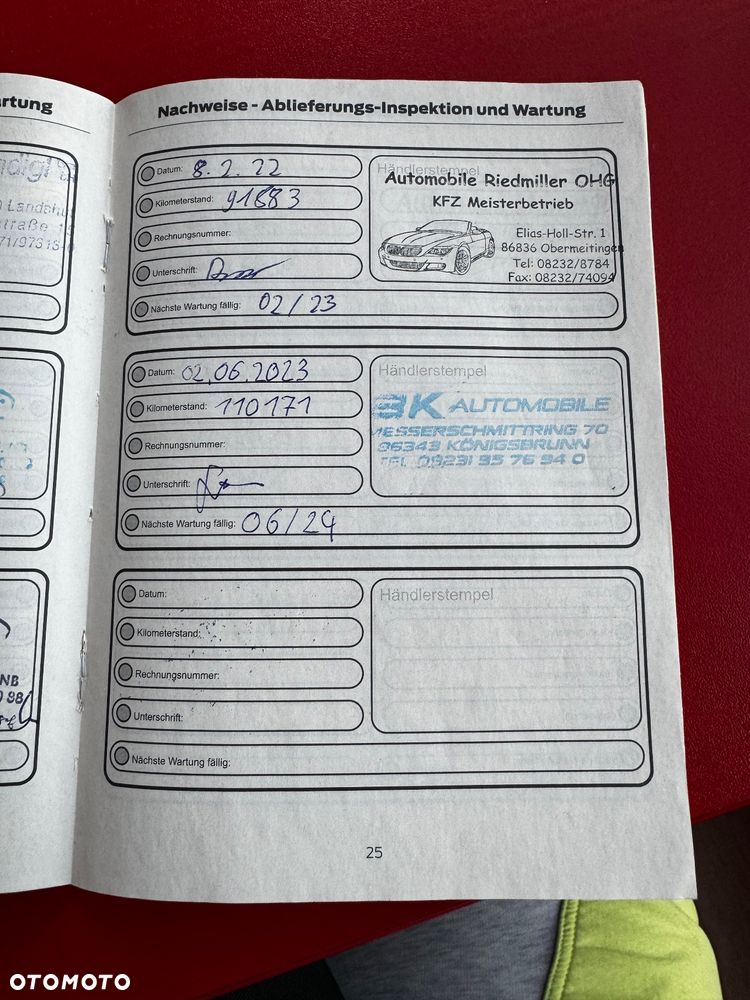 artung
Landshu
NB
Nachweise - Ablieferungs-Inspektion und Wartung
Datum: 8. 2. 22
Kilometerstand: 91883
Rechnungsnummer:
Unterschrift:
Nächste Wartung fällig: 02/23
Händlerstempel
Automobile Riedmiller OHG
KFZ Meisterbetrieb
Elias-Holl-Str. 1
86836 Obermeitingen
Tel: 08232/8784
Fax: 08232/74094
Datum: 02.06.2023
Kilometerstand: 110171
Rechnungsnummer:
Unterschrift:
Nächste Wartung fällig: 06/24
Händlerstempel
BK AUTOMOBILE
MESSERSCHMITTRING 70
86343 KÖNIGSBRUNN
TEL 08231 95 76 94 0
Datum:
Kilometerstand:
Rechnungsnummer:
Unterschrift:
Nächste Wartung fällig:
Händlerstempel
25
OTOMOTO